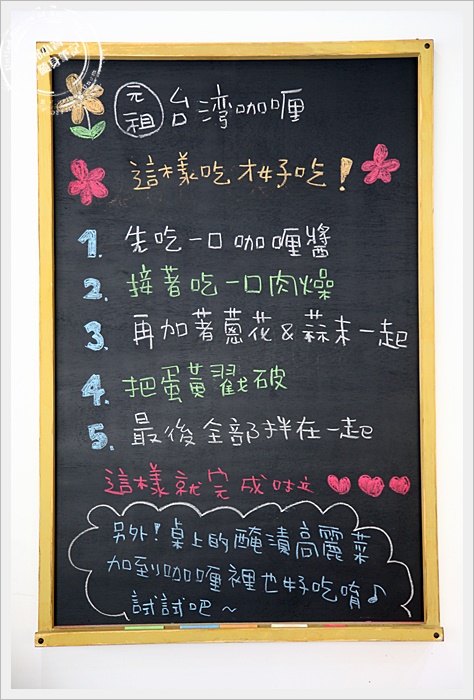 元祖 台湾咖喱
這樣吃才好吃!
1. 先吃一口咖喱醬
2. 接著吃一口肉燥
3. 再加著蔥花&蒜末一起
4. 把蛋黃戳破
5. 最後全部拌在一起
這樣就完成啦
另外!桌上的醃漬高麗菜
加到咖喱裡也好吃唷♪
試試吧~